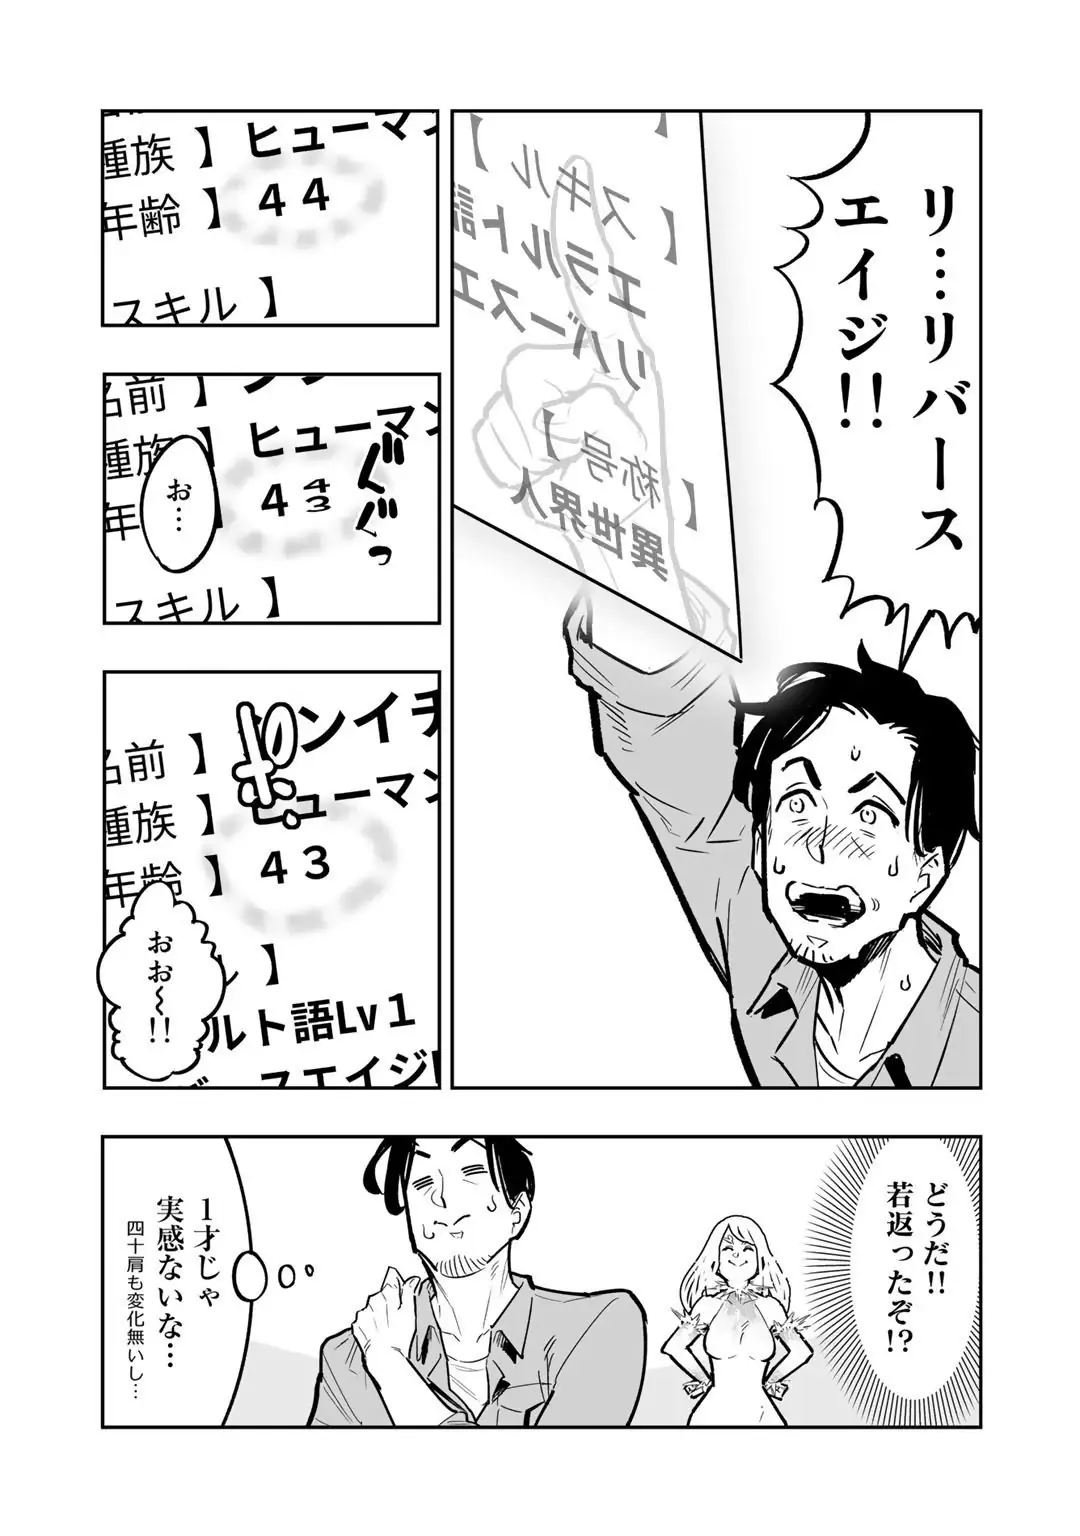 リ…リバース
エイジ!!
【スキル】
エラルト語
リバースエ
【称号】
異世界人
種族 】ヒューマン
年齢 】44
スキル 】
名前 】
種族 ヒューマン
年 】443
スキル 】
ぐんぐっ
お…
名前 】ンイチ
種族 】ューマン
年齢 】43
ル 】
ルト語Lv1
スエイジ
ポ
おお〜!!
どうだ!!
若返ったぞ!?
1才じゃ
実感ないな…
四十肩も変化無いし…